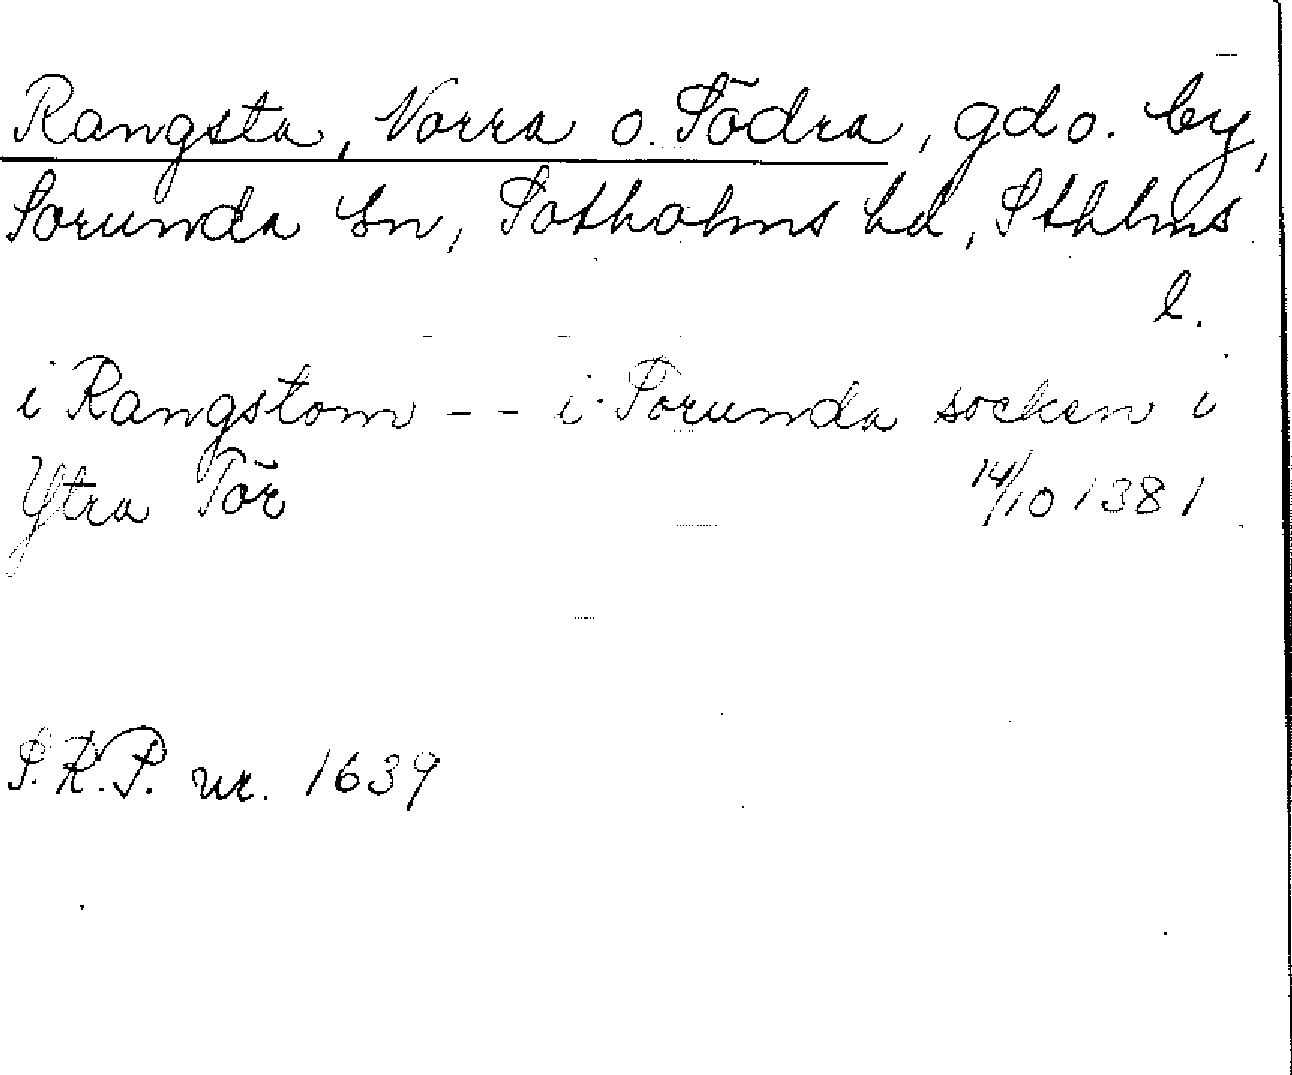 Rangsta, Norra o. Södra, gd o. by,
Sorunda sn, Sotholms hd, Sthlms
l.
i Rangstom - - i Sorunda socken i
Ytra Tör 14/10 1381
S.R.P. nr. 1639